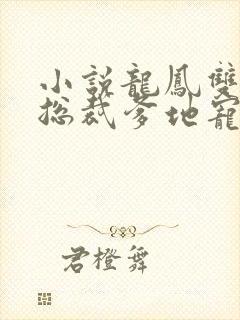 小説龍鳳雙
總裁爹地寵
君橙舞